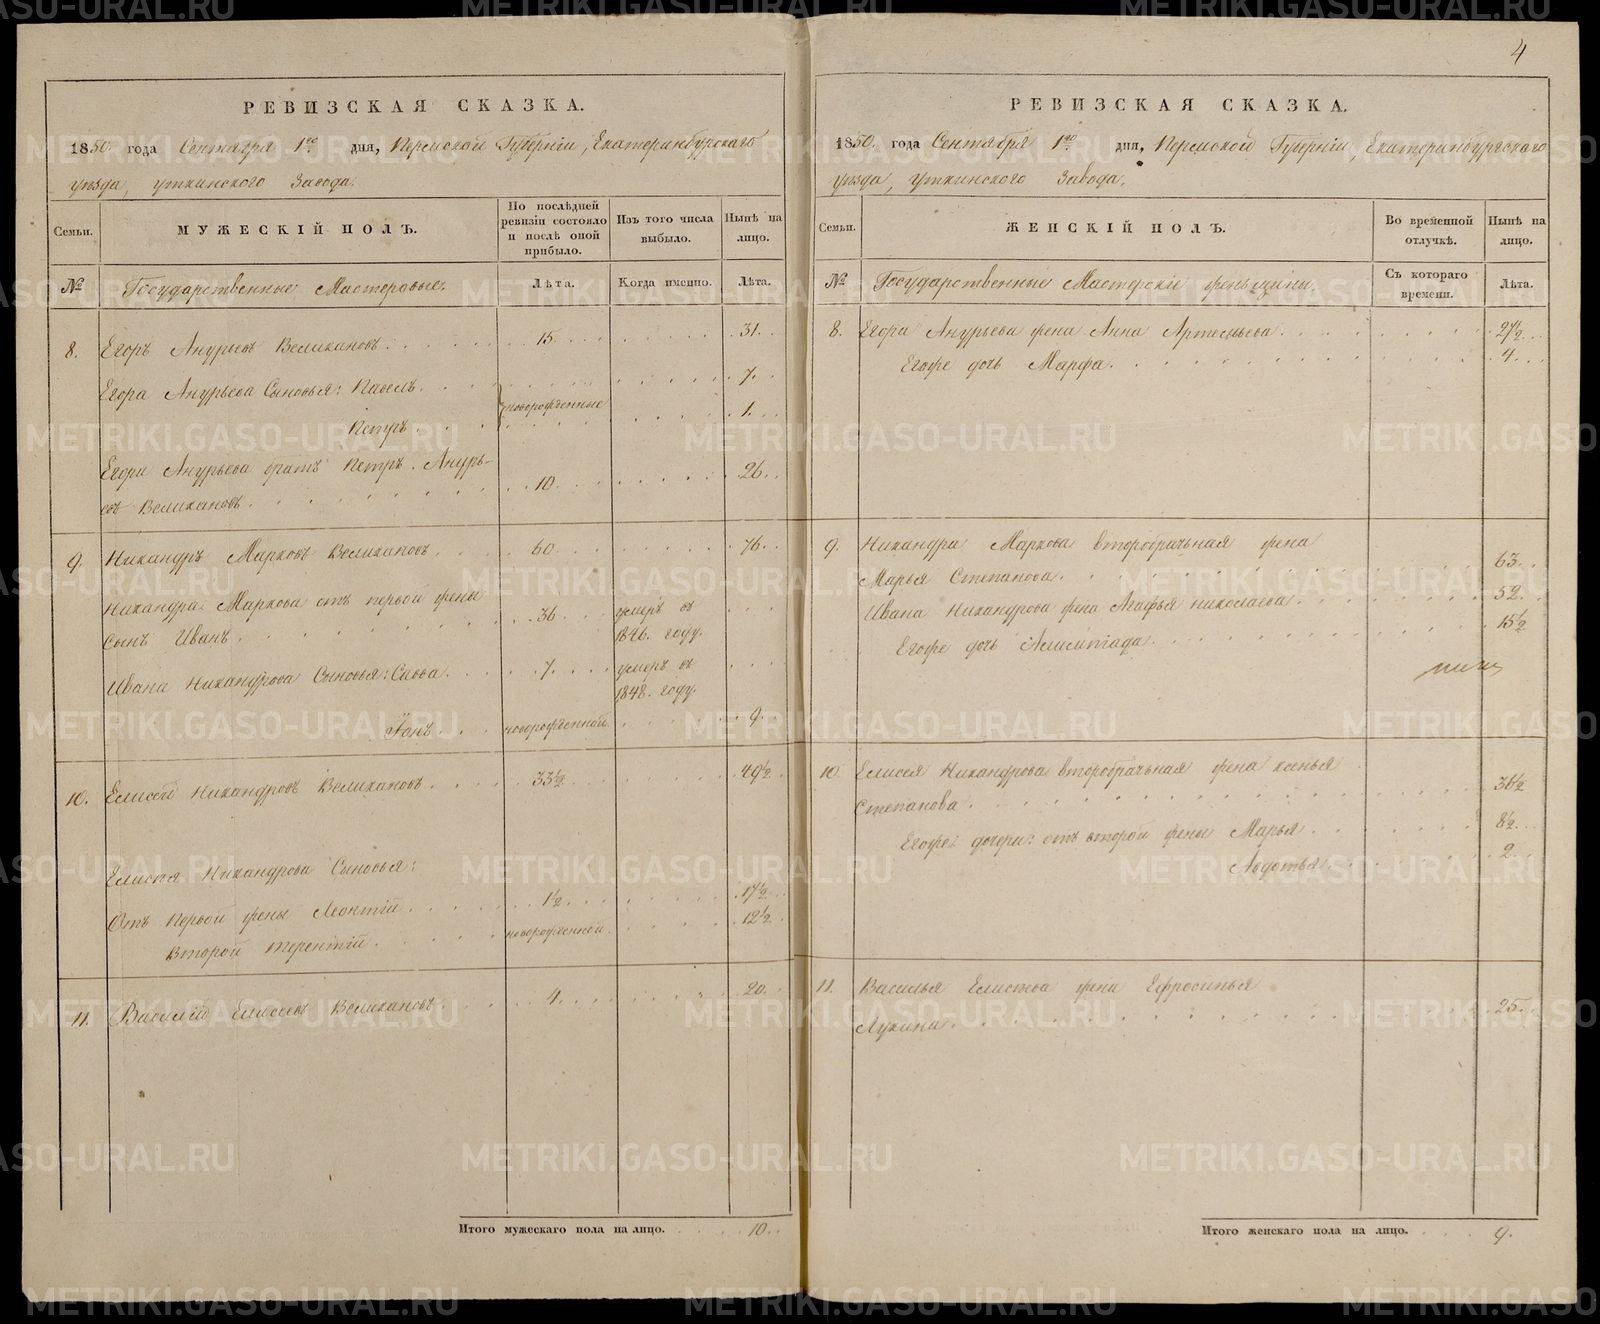 4
РЕВИЗСКАЯ СКАЗКА.
1850. года Сентября 1го дня, Пермской Губерніи, Екатеринбурскаго
уѣзда, Уткинского Завода.
Семьи.
МУЖЕСКІЙ ПОЛЪ.
По послѣдней
ревизіи состояло
и послѣ оной
прибыло.
Изъ того числа
выбыло.
Нынѣ на
лицо.
№
Государственные Мастеровые:
Лѣта.
Когда именно.
Лѣта.
8. Егоръ Ануріевъ Великановъ. 15. 31.
Егора Ануріева Сыновья: Павелъ. 7.
новорожденные
Петръ 1.
Егора Ануріева братъ Петръ. Анурь-
евъ Великановъ. 10. 26.
9. Никандръ Марковъ Великановъ. 60. 76.
Никандра Маркова отъ первой жены
сынъ Иванъ. 36. умеръ въ
1846. году.
Ивана Никандрова Сыновья: Савва. 7. умеръ въ
1848. году.
Іонъ. новорожденной. 9.
10. Елисей Никандровъ Великановъ. 33½ 49½
Елисея Никандрова Сыновья:
Отъ Первой жены Леонтій 1½ 17½
Второй Терентій. новорожденной. 12½
11. Василій Елисеевъ Великановъ. 4. 20.
Итого мужескаго пола на лицо. 10.
РЕВИЗСКАЯ СКАЗКА.
1850. года Сентября 1го дня, Пермской Губерніи, Екатеринбурскаго
уѣзда, Уткинского Завода.
Семьи.
ЖЕНСКІЙ ПОЛЪ.
Во временной
отлучкѣ.
Нынѣ на
лицо.
№
Государственные Мастерскіе женщины.
Съ котораго
времени.
Лѣта.
8. Егора Ануріева жена Анна Артемьева. 27½
Егоже дочь Марфа. 4.
9. Никандра Маркова второбрачьная жена
Марья Степанова. 63.
Ивана Никандрова жена Агафья Николаева. 52.
Егоже дочь Алимпіада. 15½
10. Елисея Никандрова второбрачьная жена Ксенья
Степанова. 36½
Егоже дочери: отъ второй жены Марья 8½
Авдотья. 2.
11. Василья Елисеева жена Ефросинья
Лукина. 25.
Итого женскаго пола на лицо. 9.
METRIKI.GASO-URAL.RU